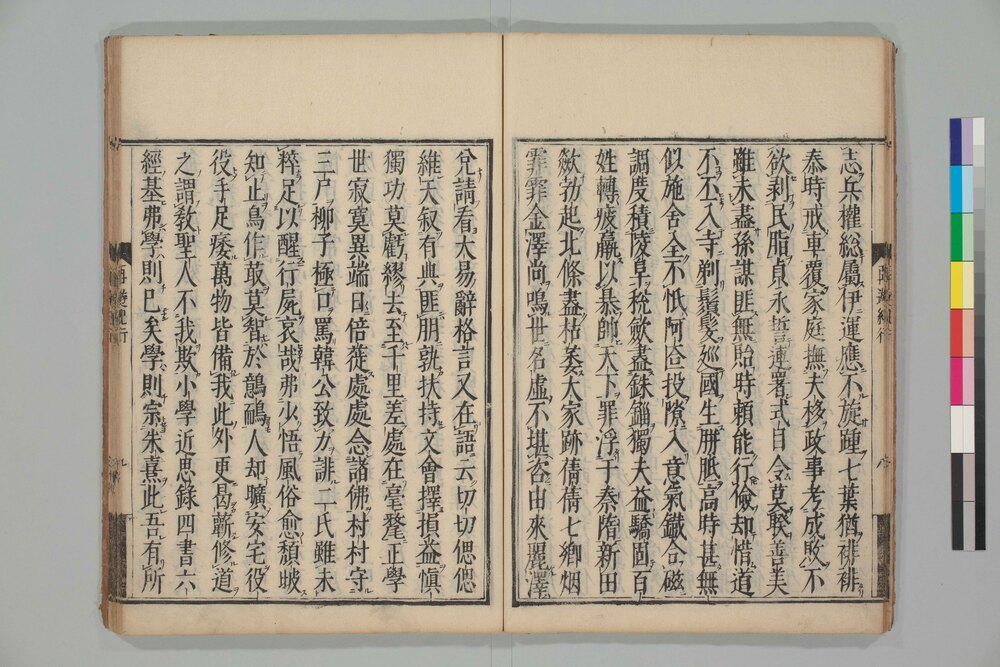 志兵權総屬伊運應不旋踵七葉猶裶裶
泰時戒車覆家庭撫夫核政事考成敗不
欲剥民脂貞永誓連署式目令莫睽善美
雖未盡孫謀匪無貽時頼能行儉却惜道
不丕入寺剃鬚髮廵國生胼胝高時甚無
似施舍全不忯阿合投隙入意氣鐵合磁
調度積陵阜税斂盡銖錙獨夫益驕固百
姓轉疲羸以暴帥天下罪浮于秦隋新田
欻勃起北條盡枯萎大家跡倩倩七鄉烟
霏霏金澤尚鳴世名虛不堪咨由來麗澤
兌請看大易辭格言又在語云切切偲偲
維天叙有典匪朋孰扶持文會擇損益愼
獨功莫虧繆去至千里差處在毫釐正學
世寂寞異端日倍蓰處處念諸佛村村守
三尸柳子極口罵韓公致力誹二氏雖未
粹足以醒行屍哀哉弗少悟風俗愈頽坡
知止鳥作敢莫智於鷾鴯人却曠安宅役
役手足痿萬物皆備我此外更曷蘄修道
之謂教聖人不我欺小學近思錄四書六
經基弗學則已矣學則宗朱熹此吾有所